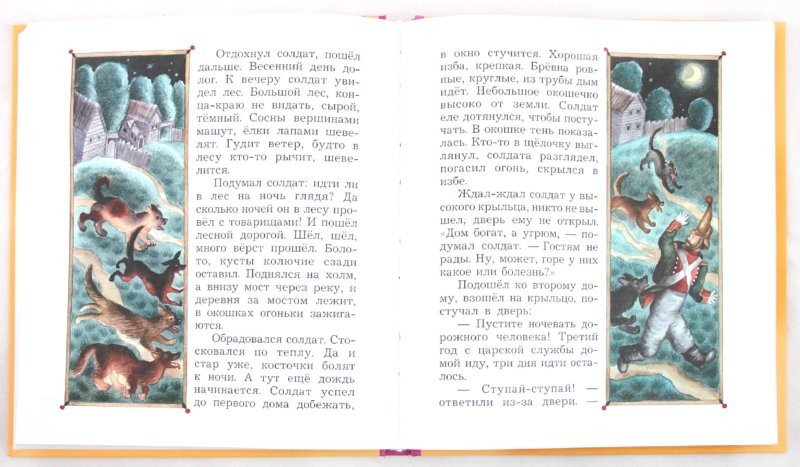 Отдохнул солдат, пошёл
дальше. Весенний день до-
лог. К вечеру солдат уви-
дел лес. Большой лес, кон-
ца-краю не видать, сырой,
тёмный. Сосны вершинами
машут, ёлки лапами шеве-
лят. Гудит ветер, будто в
лесу кто-то рычит, шеве-
лится.
Подумал солдат: идти ли
в лес на ночь глядя? Да
сколько ночей он в лесу про-
вёл с товарищами! И пошёл
лесной дорогой. Шёл, шёл,
много вёрст прошёл. Боло-
то, кусты колючие сзади
оставил. Поднялся на холм,
а внизу мост через реку, и
деревня за мостом лежит,
в окошках огоньки зажига-
ются.
Обрадовался солдат. Сто-
сковался по теплу. Да и
стар уже, косточки болят
к ночи. А тут ещё дождь
начинается. Солдат успел
до первого дома добежать,
в окно стучится. Хорошая
изба, крепкая. Брёвна ров-
ные, круглые, из трубы дым
идёт. Небольшое окошечко
высоко от земли. Солдат
еле дотянулся, чтобы посту-
чать. В окошке тень показа-
лась. Кто-то в щёлочку выг-
лянул, солдата разглядел,
погасил огонь, скрылся в
избе.
Ждал-ждал солдат у вы-
сокого крыльца, никто не вы-
шел, дверь ему не открыл.
«Дом богат, а угрюм, — по-
думал солдат. — Гостям не
рады. Ну, может, горе у них
какое или болезнь?»
Подошёл ко второму до-
му, взошёл на крыльцо, по-
стучал в дверь:
— Пустите ночевать до-
рожного человека! Третий
год с царской службы до-
мой иду, три дня идти оста-
лось.
— Ступай-ступай! —
ответили из-за двери. —